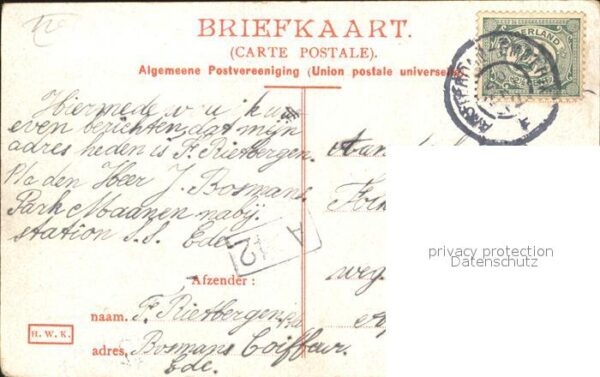 BRIEFKAART.
(CARTE POSTALE).
Algemeene Postvereeniging (Union postale universelle
NEDERLAND
AMSTERDAM
Hiermede w u ik
even berichten dat mijn
adres heden is F. Rietbergen.
P/a den Heer J. Bosmans.
Park Maanen nabij
station S.S. Ede
Aan
weg
I
42
privacy protection
Datenschutz
Afzender:
naam. F. Rietbergen
adres, Bosmans Coiffeur.
Ede.
H. W. K.